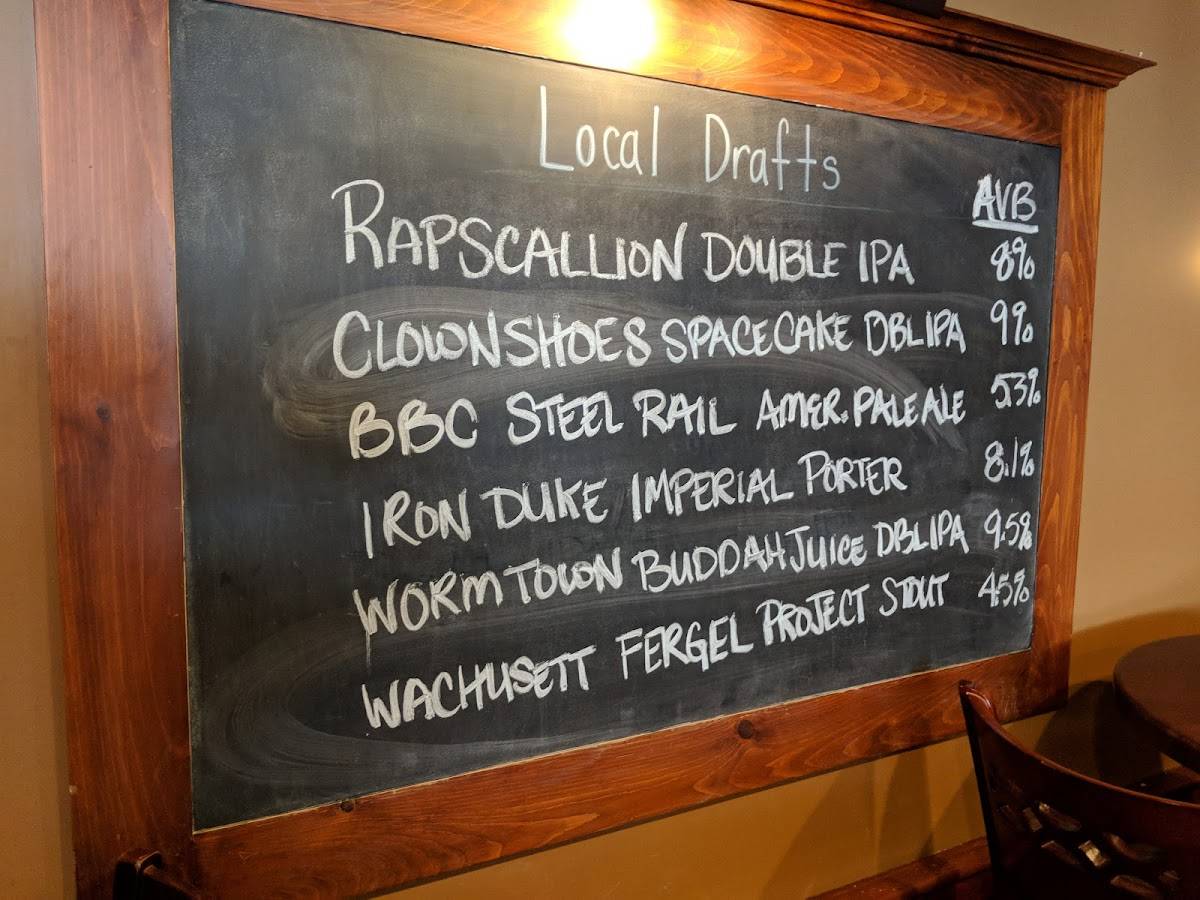 Local Drafts
AVB
RAPSCALLION DOUBLE IPA 8%
CLOWNSHOES SPACECAKE DBL IPA 9%
BBC STEEL RAIL AMER. PALE ALE 5.3%
IRON DUKE IMPERIAL PORTER 8.1%
WORMTOWN BUDDAH JUICE DBL IPA 9.5%
WACHUSETT FERGEL PROJECT STOUT 4.5%